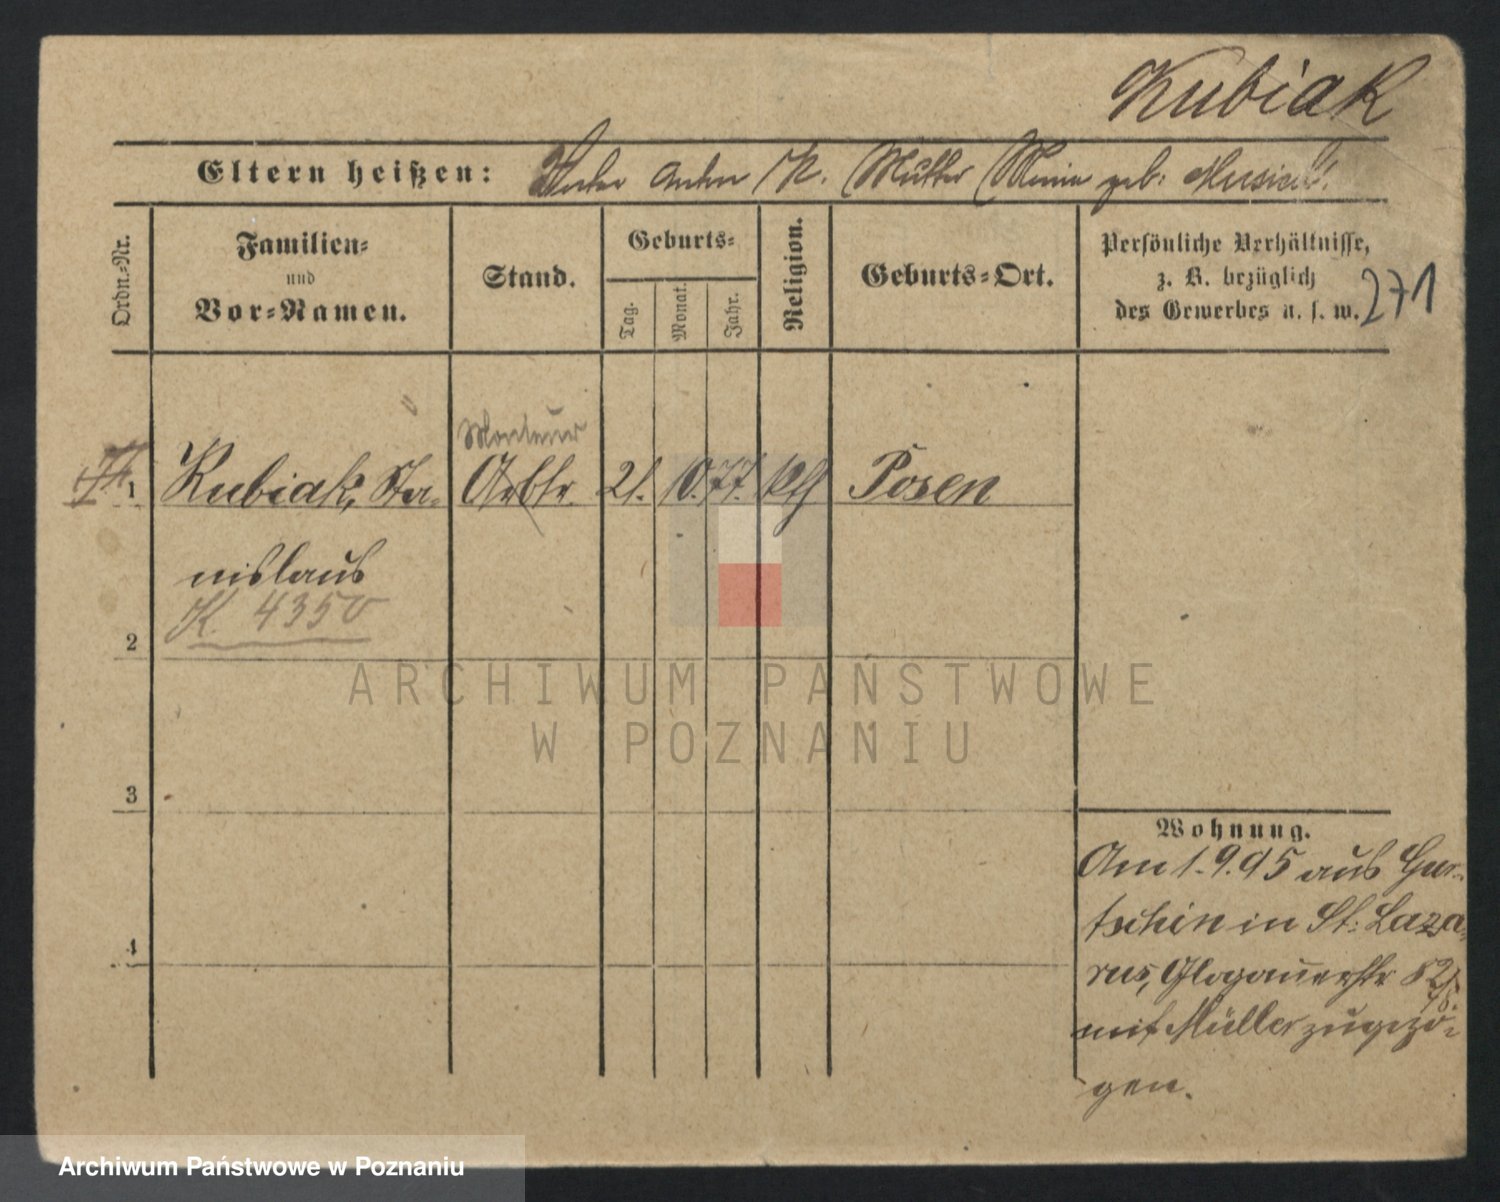 Kubiak
Eltern heißen: Vater Anton K. Mutter geb:
Ordn.-Nr.
Familien-
und
Vor-Namen.
Stand.
Geburts-
Tag.
Monat.
Jahr.
Religion.
Geburts-Ort.
Persönliche Verhältnisse,
z. B. bezüglich
des Gewerbes u. s. w.
271
Monteur
1 Kubiak, Sta- Arbtr. 21. 10. 77. kth Posen
nislaus
K. 4350
2
3
4
Wohnung.
Am 1.9.95 aus Gur-
tschin in St: Laza-
rus, Glogauerstr 82
mit Müller zugezo-
gen.
ARCHIWUM PAŃSTWOWE
W POZNANIU
Archiwum Państwowe w Poznaniu